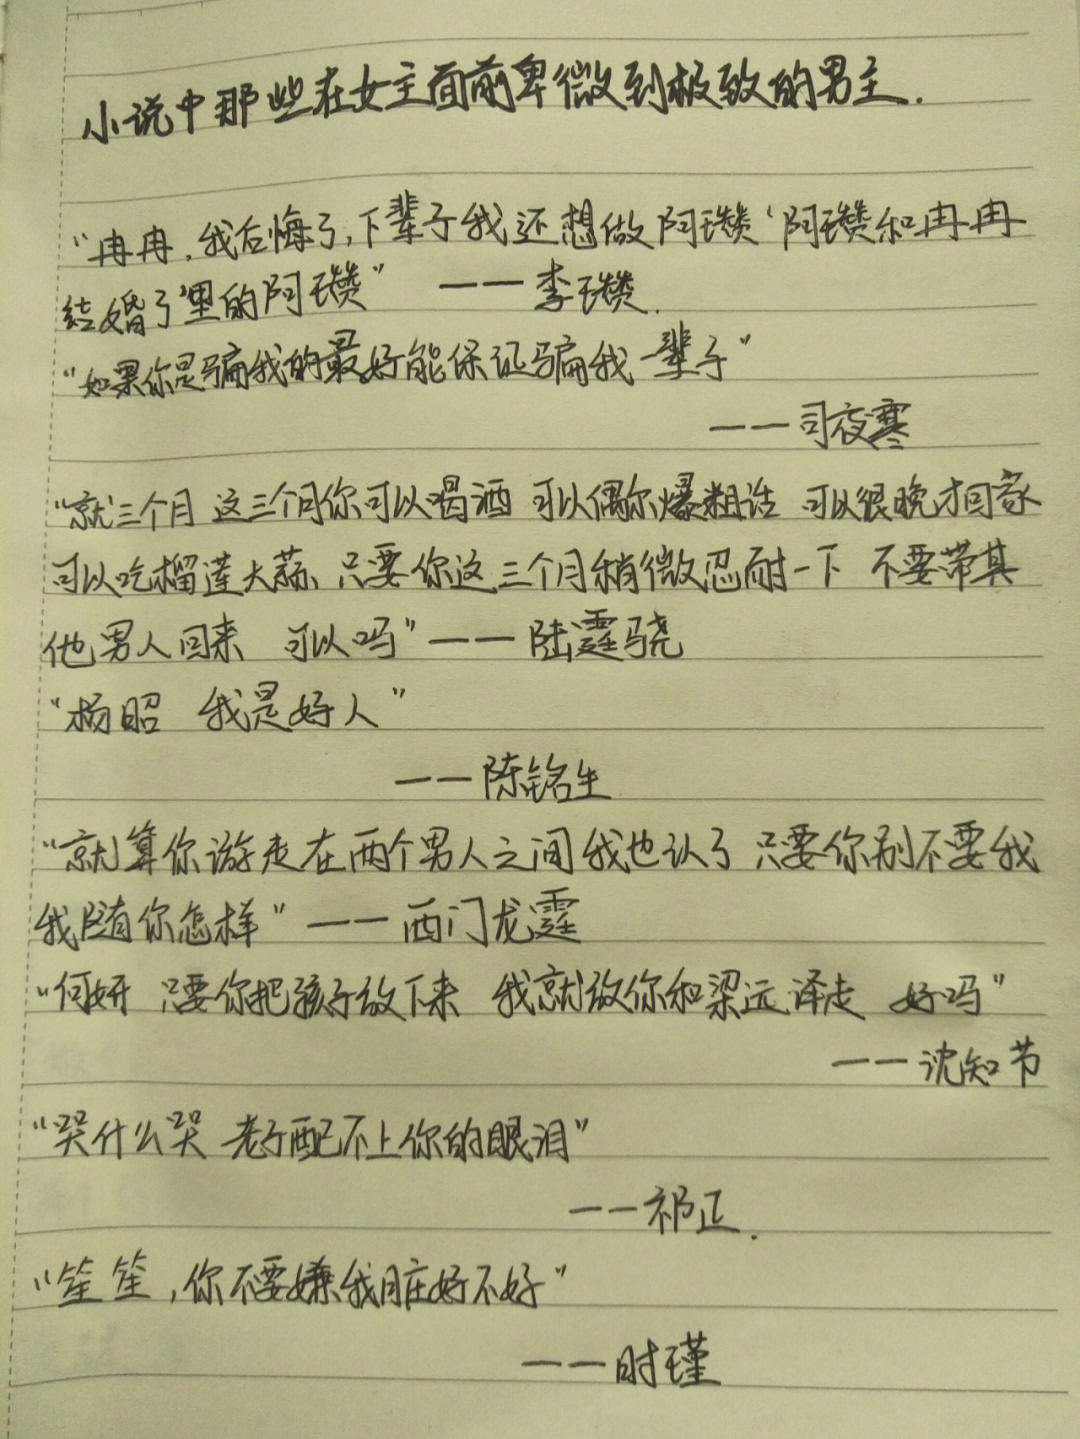 小说中那些在女主面前卑微到极致的男主.
"冉冉,我后悔了,下辈子我还想做阿瓒‘阿瓒和冉冉
结婚了'里的阿瓒" ——李瓒.
"如果你是骗我的最好能保证骗我一辈子"
——司夜寒
"就三个月 这三个月你可以喝酒 可以偶尔爆粗话 可以很晚才回家
可以吃榴莲大蒜、只要你这三个月稍微忍耐一下 不要带其
他男人回来 可以吗"——陆霆骁
"杨昭 我是好人"
——陈铭生
"就算你游走在两个男人之间我也认了 只要你别不要我
我随你怎样"——西门龙霆
"何妍 只要你把孩子放下来 我就放你和梁远泽走 好吗"
——沈知节
"哭什么哭 老子配不上你的眼泪"
——祁正.
"笙笙,你不要嫌我脏好不好"
——时瑾